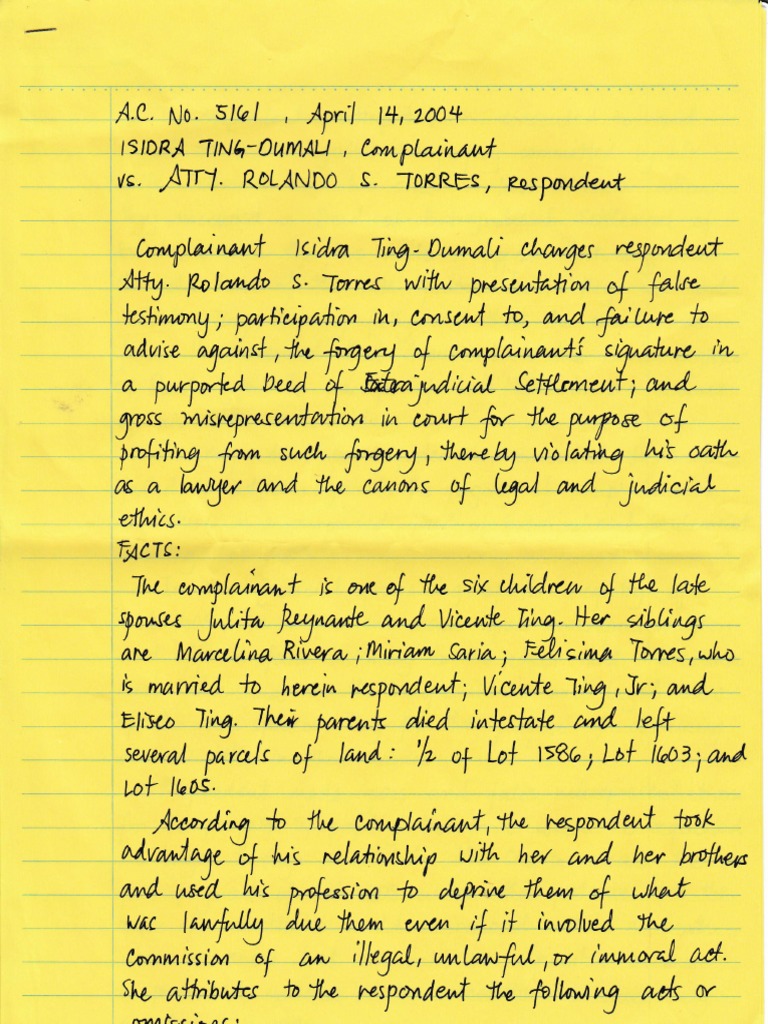 A.C. No. 5161 , April 14, 2004
ISIDRA TING-DUMALI , Complainant
vs. ATTY. ROLANDO S. TORRES, respondent
Complainant Isidra Ting-Dumali charges respondent
Atty. Rolando S. Torres with presentation of false
testimony; participation in, consent to, and failure to
advise against, the forgery of complainant's signature in
a purported Deed of Extrajudicial Settlement; and
gross misrepresentation in court for the purpose of
profiting from such forgery, thereby violating his oath
as a lawyer and the canons of legal and judicial
ethics.
FACTS:
The complainant is one of the six children of the late
spouses Julita Reynante and Vicente Ting. Her siblings
are Marcelina Rivera ; Miriam Saria ; Felisima Torres, who
is married to herein respondent; Vicente Ting, Jr; and
Eliseo Ting. Their parents died intestate and left
several parcels of land: 1/2 of Lot 1586 ; Lot 1603 ; and
Lot 1605.
According to the complainant, the respondent took
advantage of his relationship with her and her brothers
and used his profession to deprive them of what
was lawfully due them even if it involved the
commission of an illegal, unlawful, or immoral act.
She attributes to the respondent the following acts or
omissions: